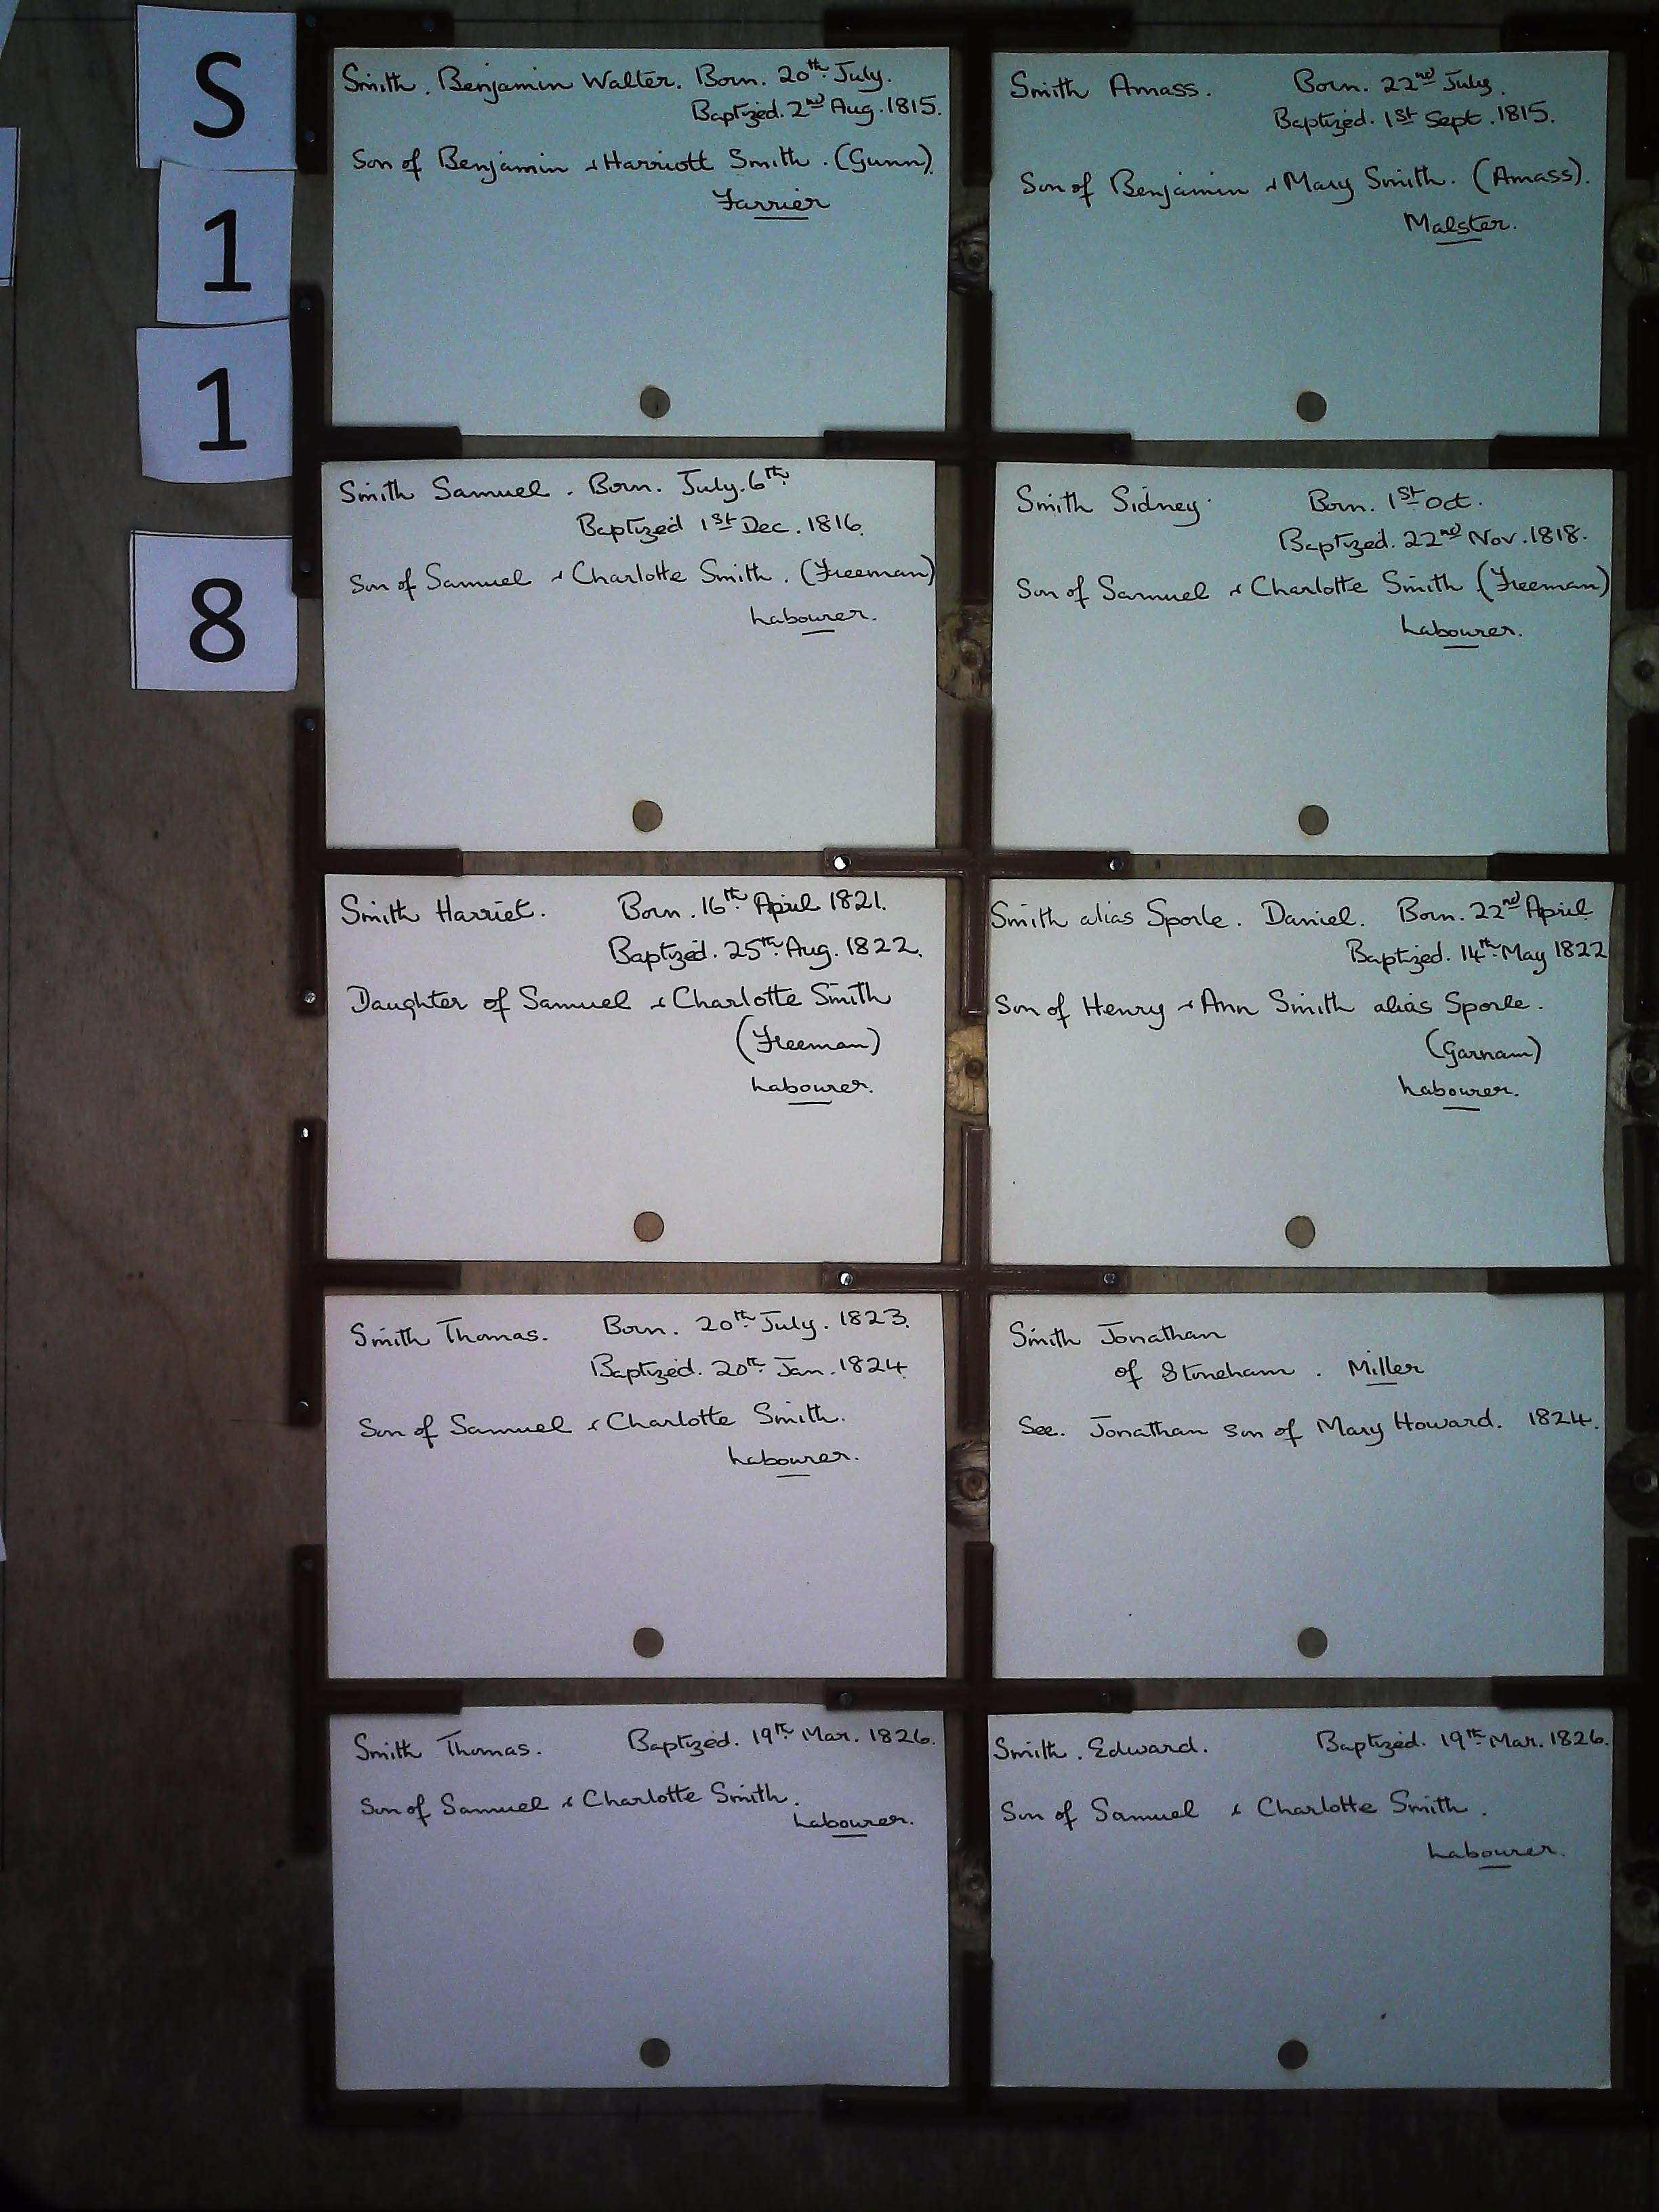 S
1
1
8
Smith. Benjamin Walter. Born. 20th July.
Baptized. 2nd Aug. 1815.
Son of Benjamin & Harriott Smith. (Gunn).
Farrier
Smith Amass. Born. 22nd July.
Baptized. 1st Sept. 1815.
Son of Benjamin & Mary Smith. (Amass).
Malster.
Smith Samuel. Born. July. 6th
Baptized 1st Dec. 1816.
Son of Samuel & Charlotte Smith. (Freeman)
Labourer.
Smith Sidney. Born. 1st Oct.
Baptized. 22nd Nov. 1818.
Son of Samuel & Charlotte Smith (Freeman)
Labourer.
Smith Harriet. Born. 16th April 1821.
Baptized. 25th Aug. 1822.
Daughter of Samuel & Charlotte Smith
(Freeman)
Labourer.
Smith alias Sporle. Daniel. Born. 22nd April
Baptized. 14th May 1822
Son of Henry & Ann Smith alias Sporle.
(Garnam)
Labourer.
Smith Thomas. Born. 20th July. 1823.
Baptized. 20th Jan. 1824.
Son of Samuel & Charlotte Smith.
Labourer.
Smith Jonathan
of Stoneham. Miller
See. Jonathan son of Mary Howard. 1824.
Smith Thomas. Baptized. 19th Mar. 1826.
Son of Samuel & Charlotte Smith.
Labourer.
Smith. Edward. Baptized. 19th Mar. 1826.
Son of Samuel & Charlotte Smith.
Labourer.